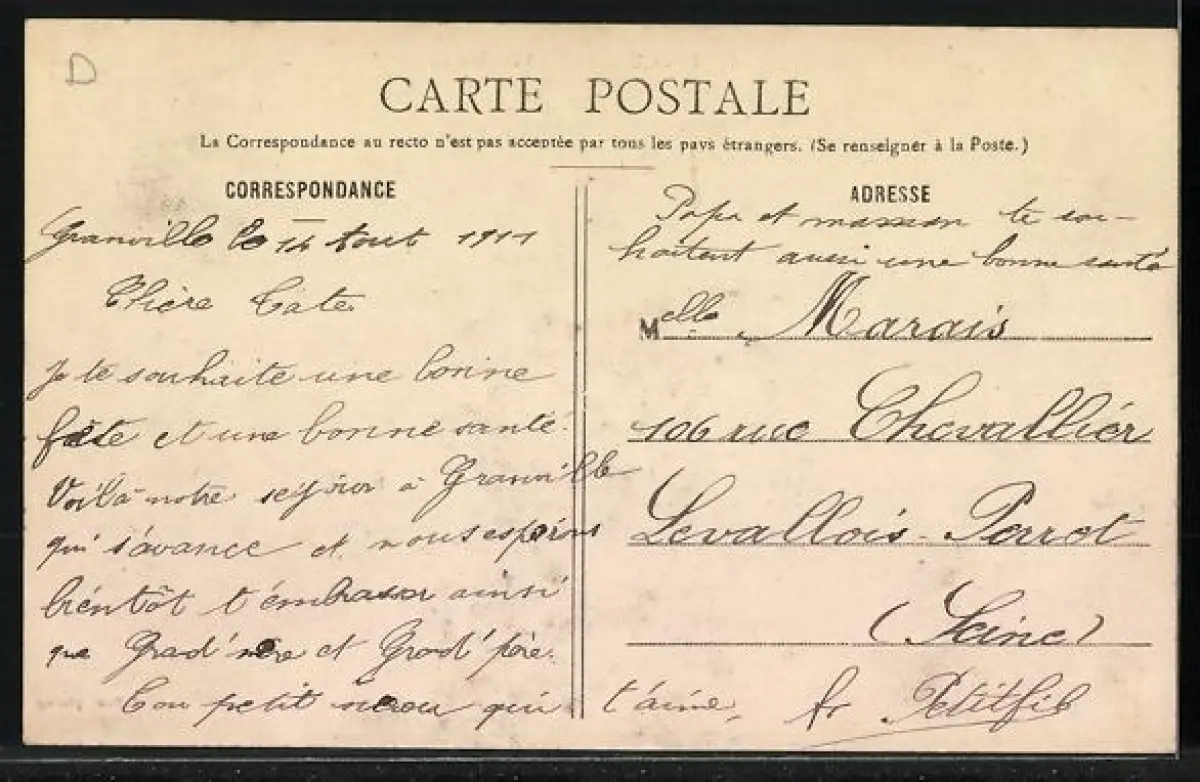 D
CARTE POSTALE
La Correspondance au recto n'est pas acceptée par tous les pays étrangers. (Se renseigner à la Poste.)
CORRESPONDANCE
Granville le 14 Aout 1911
Chère Tate
Je te souhaite une bonne
fête et une bonne santé.
Voilà notre séjour à Granville
qui s'avance et nous espérons
bientôt t'embrasser ainsi
que Grad'mère et Grand'père.
Ton petit neveu qui t'aime,
Petitfils
ADRESSE
Papa et maman te sou-
haitent aussi une bonne santé
Melle Marais
106 rue Chevallier
Levallois-Perret
(Seine)